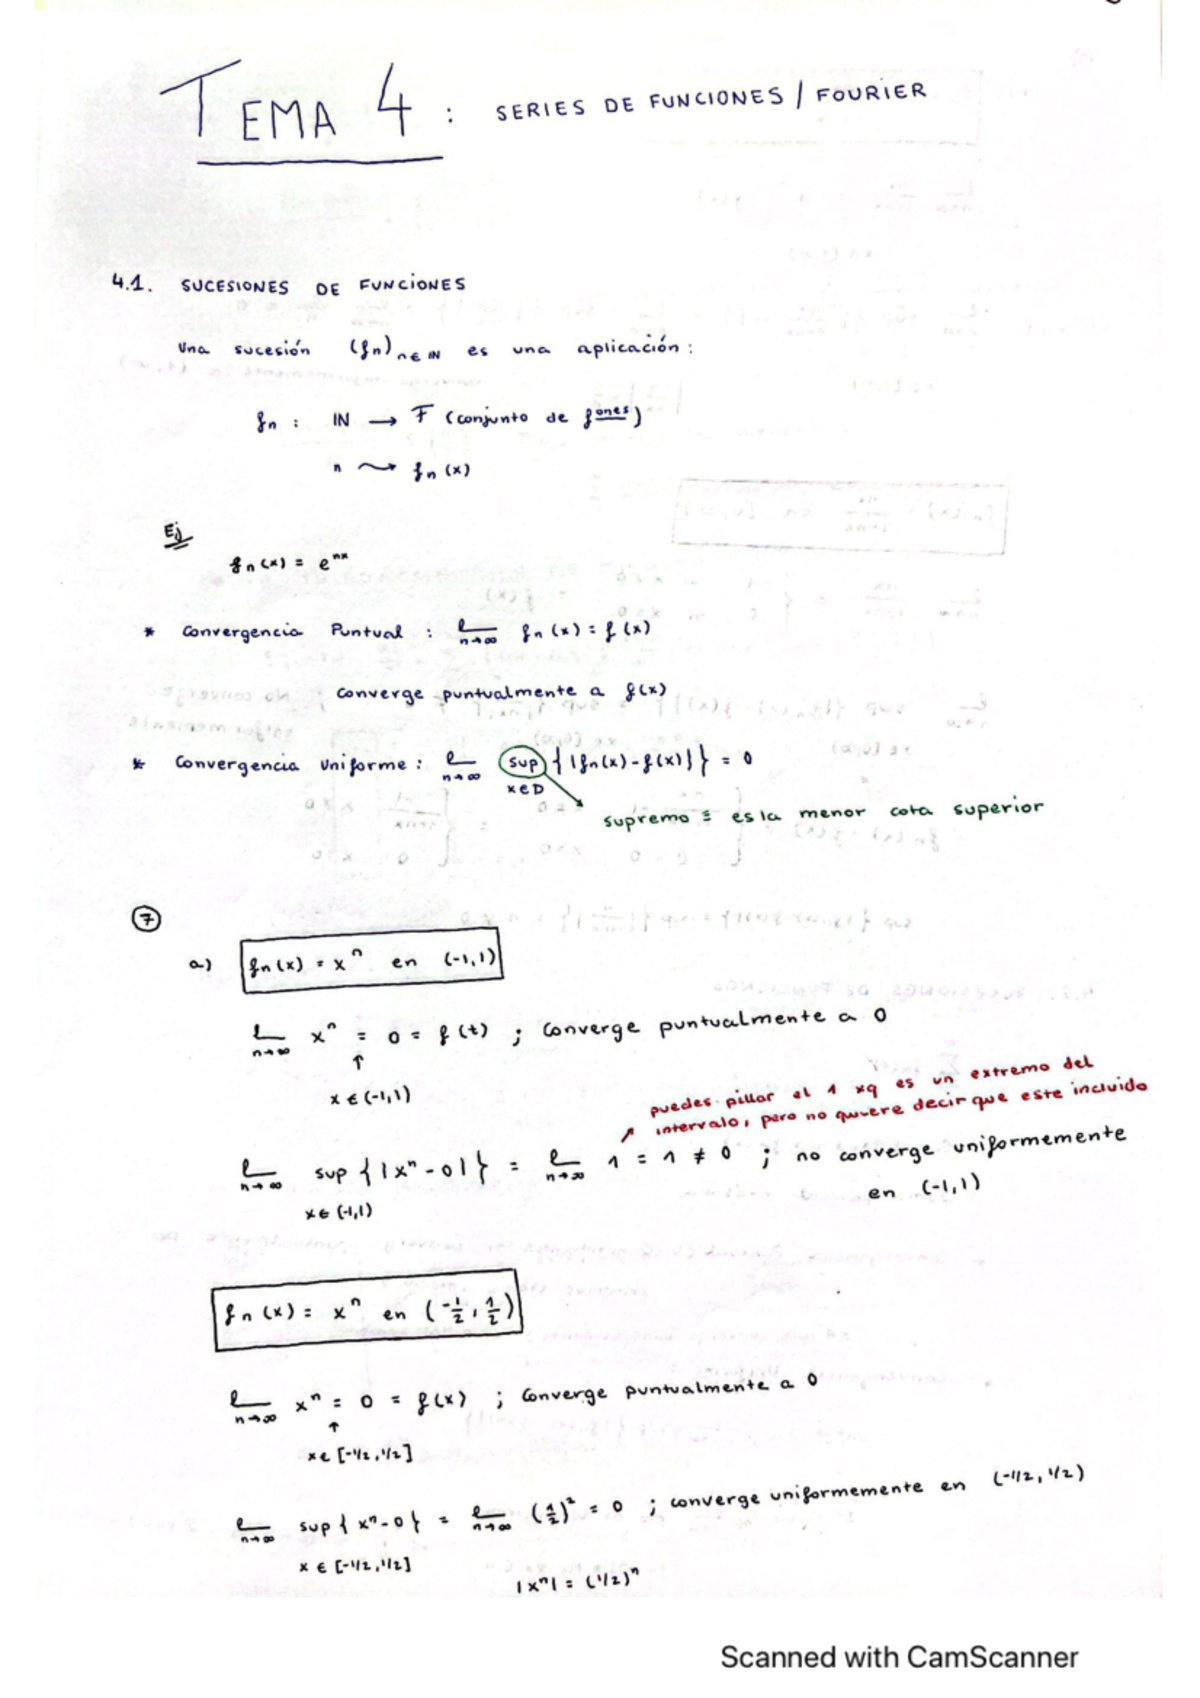 TEMA 4 : SERIES DE FUNCIONES / FOURIER
4.1. SUCESIONES DE FUNCIONES
Una sucesión (fn) n∈IN es una aplicación:
fn : IN → F (conjunto de fones)
n ⤳ fn (x)
Ej
fn(x) = e^nx
* Convergencia Puntual : l n→∞ fn (x) = f (x)
converge puntualmente a f(x)
* Convergencia Uniforme : l n→∞ sup x∈D { |fn(x) - f(x)| } = 0
supremo ≡ es la menor cota superior
7
a) fn(x) = x^n en (-1,1)
l n→∞ x^n = 0 = f(t) ; Converge puntualmente a 0
↑
x ∈ (-1,1)
puedes pillar el 1 xq es un extremo del
intervalo, pero no quiere decir que este incluido
l n→∞ sup { |x^n - 0| } = l n→∞ 1 = 1 ≠ 0 ; no converge uniformemente
x ∈ (-1,1) en (-1,1)
fn (x) = x^n en (-1/2, 1/2)
l n→∞ x^n = 0 = f(x) ; Converge puntualmente a 0
↑
x ∈ [-1/2, 1/2]
l n→∞ sup { x^n - 0 } = l n→∞ (1/2)^2 = 0 ; converge uniformemente en (-1/2, 1/2)
x ∈ [-1/2, 1/2]
|x^n| = (1/2)^n
Scanned with CamScanner